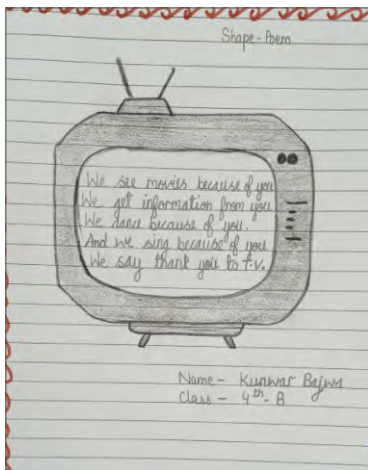 Shape-Poem
We see movies because of you
We get information from you
We dance because of you.
And we sing because of you
We say thank you to t.v.
Name- Kunwar Bajwa
Class - 4th- B